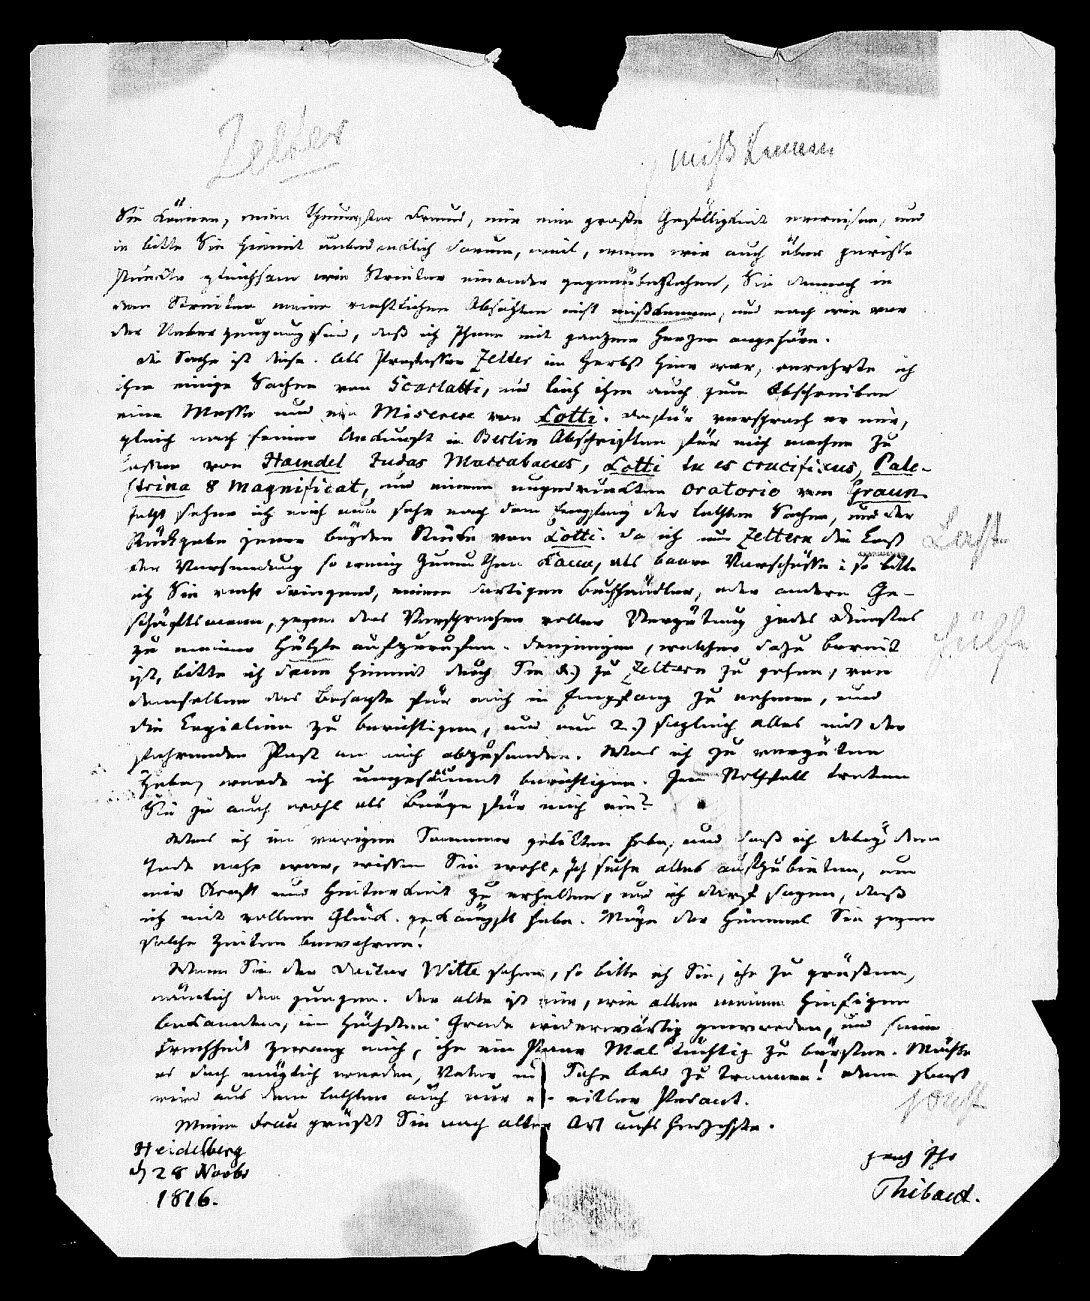 Zelter
mißkennen
Sie können, mein theuerster Freund, mir eine große Gefälligkeit erweisen, und
ich bitte Sie hiemit unbedenklich darum, weil, wenn wir auch über gewisse
Puncte gleichsam wie Streiter einander gegenüberstehen, Sie dennoch in
dem Streiter meine rechtlichen Absichten nicht mißkennen, und nach wie vor
der Ueberzeugung sind, daß ich Ihnen mit ganzem Herzen angehöre.
Die Sache ist diese. Als Professor Zelter im Herbst hier war, verehrte ich
ihm einige Sachen von Scarlatti, und lieh ihm auch zum Abschreiben
eine Messe und ein Miserere von Lotti. Dafür versprach er mir,
gleich nach seiner Ankunft in Berlin Abschriften für mich machen zu
lassen von Haendel Judas Maccabaeus, Lotti tu es crucifixus, Pale-
strina 8 Magnificat, und einem ungedruckten Oratorio von Graun.
Jetzt sehne ich mich nun sehr nach dem Empfang der letzten Sachen, und der
Rückgabe jener beyden Stücke von Lotti. Da ich nun Zeltern die Last
Last
der Versendung so wenig zumuthen kann, als baare Vorschüsse: so bitte
ich Sie recht dringend, einen dortigen Buchhändler, oder andern Ge-
schäftsmann, gegen das Versprechen voller Vergütung jedes Dienstes
zu meiner Hülfe aufzurufen. Denjenigen, welcher dazu bereit
Hülfe
ist, bitte ich dann hiemit durch Sie 1.) zu Zeltern zu gehen, von
demselben das Besagte für mich in Empfang zu nehmen, und
die Copialien zu berichtigen, und nun 2.) sogleich alles mit der
fahrenden Post an mich abzusenden. Was ich zu vergüten
habe, werde ich ungesäumt berichtigen. Im Nothfall treten
Sie ja auch wohl als Bürge für mich ein?
Was ich im vorigen Sommer gelitten habe, und daß ich dabey dem
Tode nahe war, wissen Sie wohl. Ich suche alles aufzubieten, um
mir Kraft und Heiterkeit zu erhalten, und ich darf sagen, daß
ich mit vollem Glück gekämpft habe. Möge der Himmel Sie gegen
solche Zeiten bewahren.
Wenn Sie den Doctor Witte sehen, so bitte ich Sie, ihn zu grüßen,
nämlich den jungen. Der alte ist mir, wie allen meinen hiesigen
Bekannten, im höchsten Grade widerwärtig geworden, und seine
Frechheit zwang mich, ihn ein Paar Mal tüchtig zu bürsten. Möchte
es doch möglich werden, Vater und Sohn bald zu trennen! Denn sonst
sonst
wird aus dem letzten auch nur ein eitler Pedant.
Meine Frau grüßt Sie nach alter Art aufs herzlichste.
Heidelberg
d 28 Novbr
1816.
ganz Ihr
Thibaut.